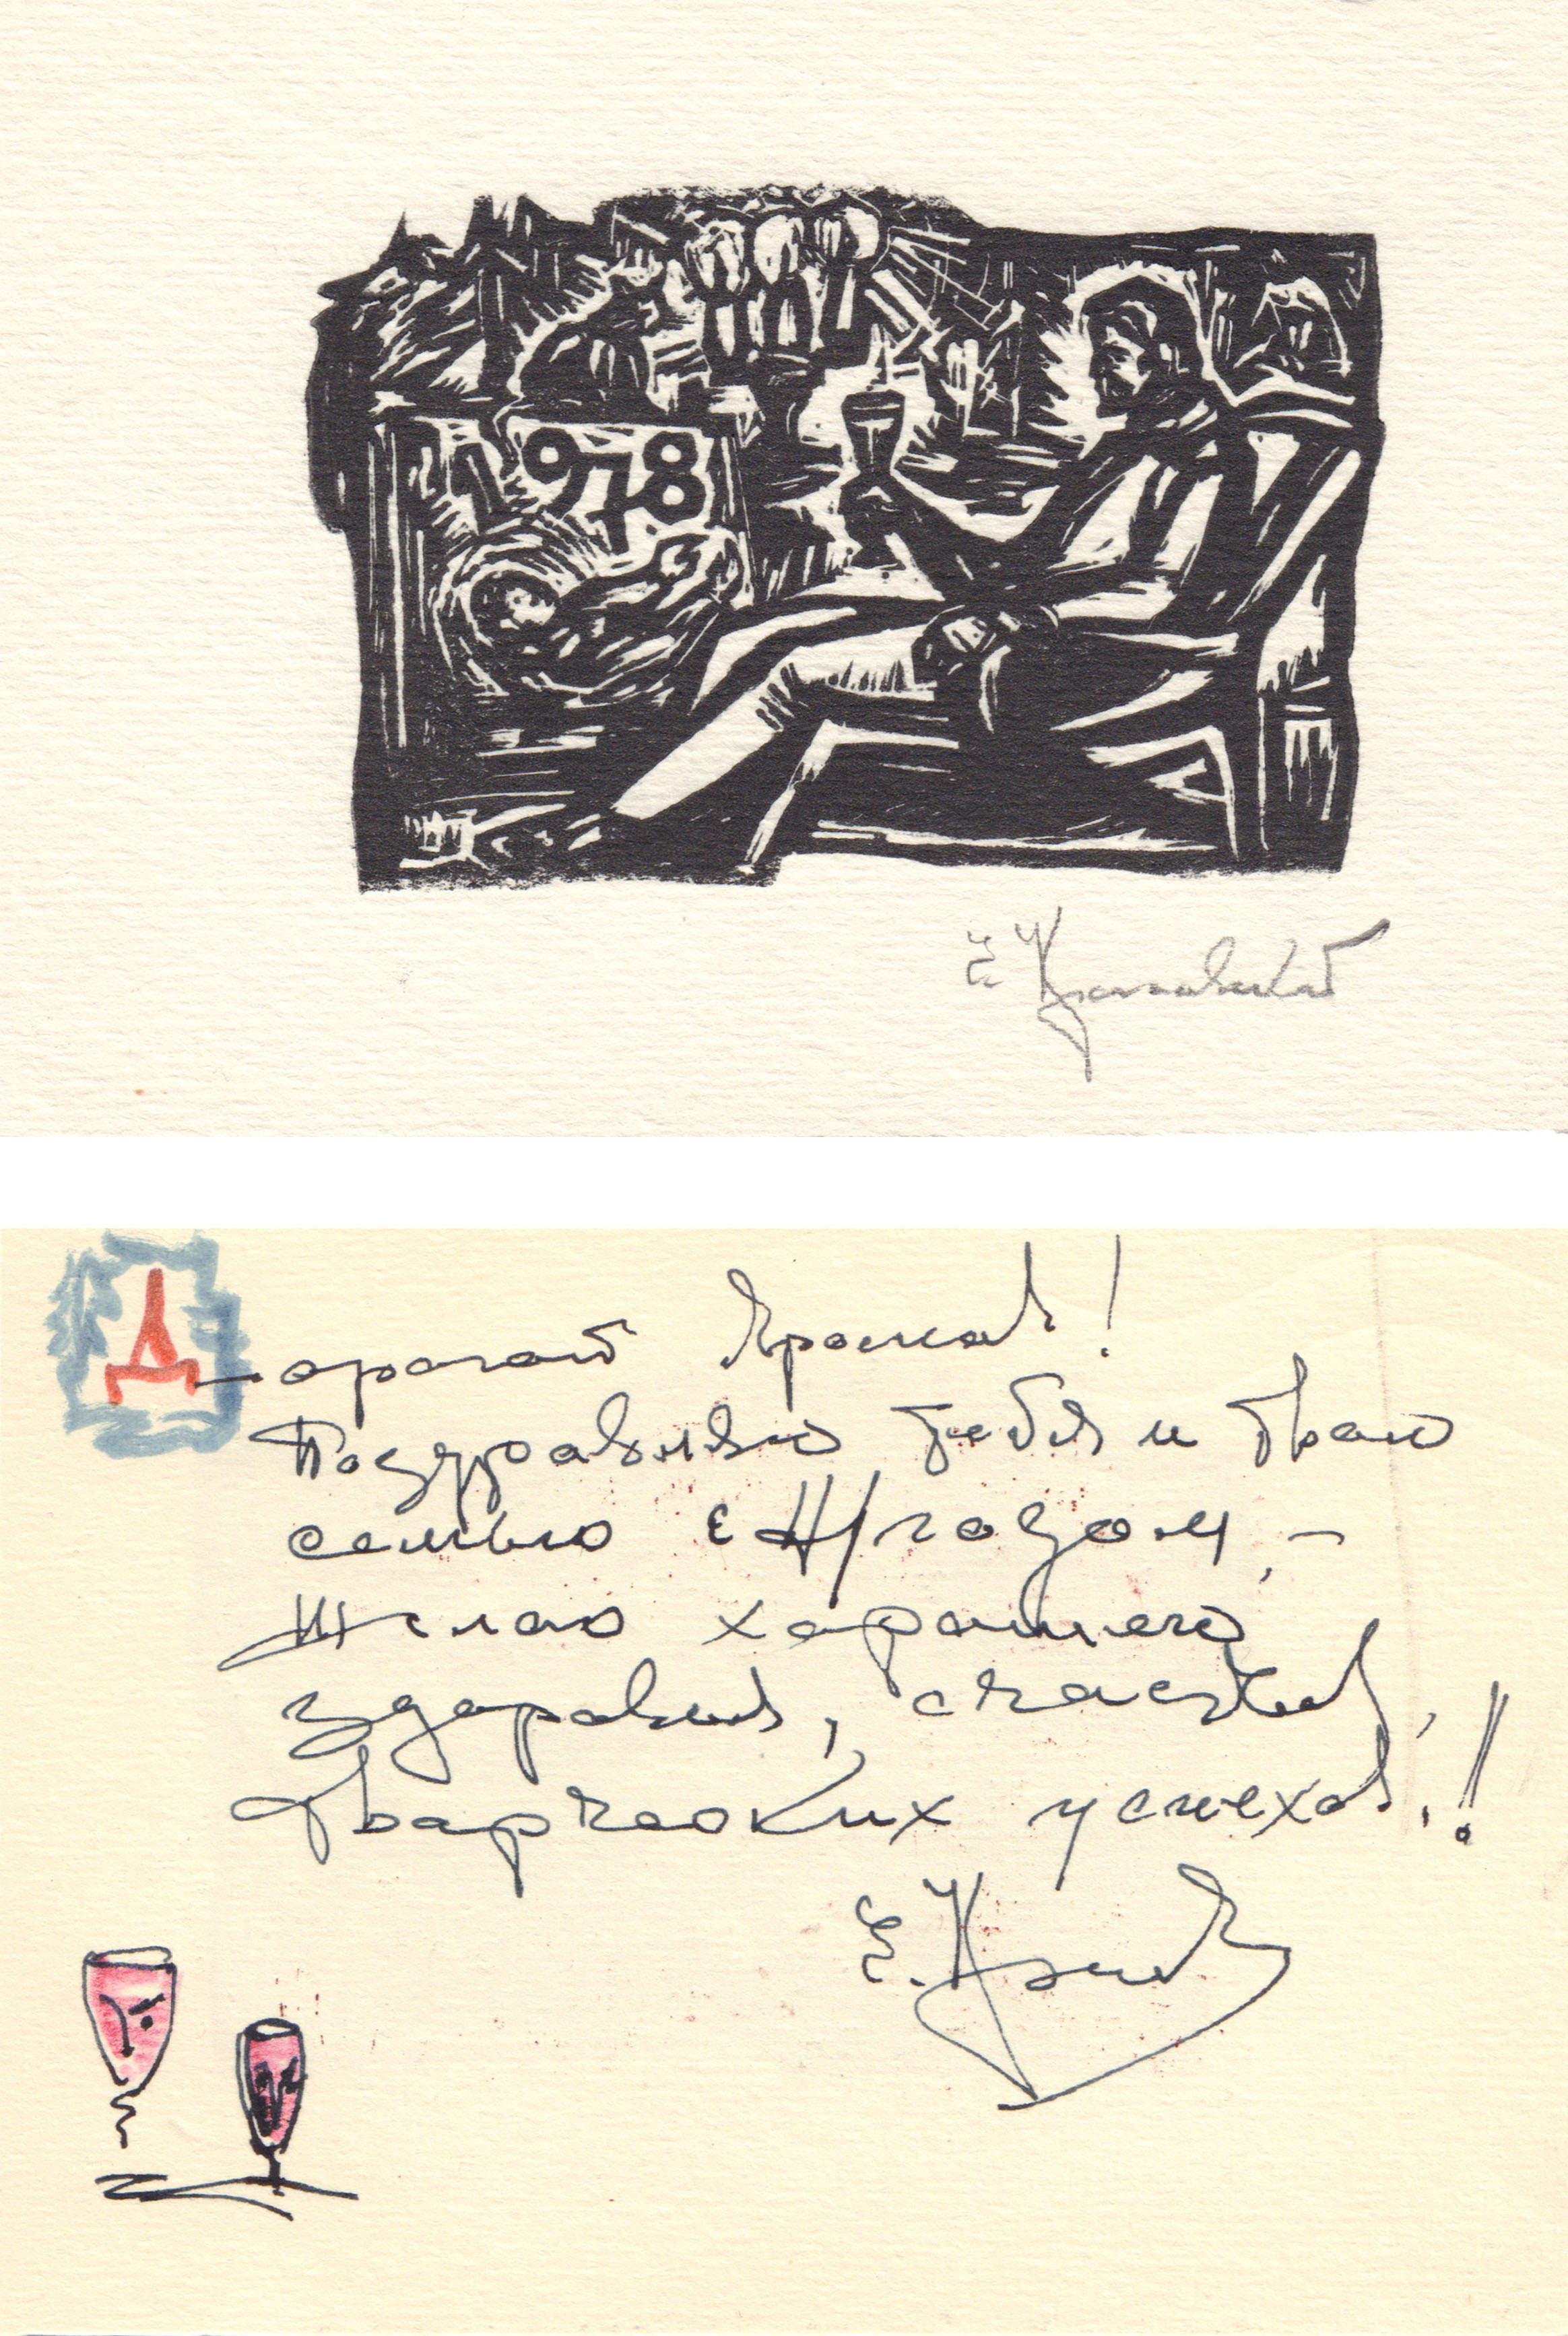 1978
Дорогой Ярослав!
Поздравляю тебя и твою
семью с Н/годом, –
Желаю хорошего
здоровья, счастья,
творческих успехов!!
Е.